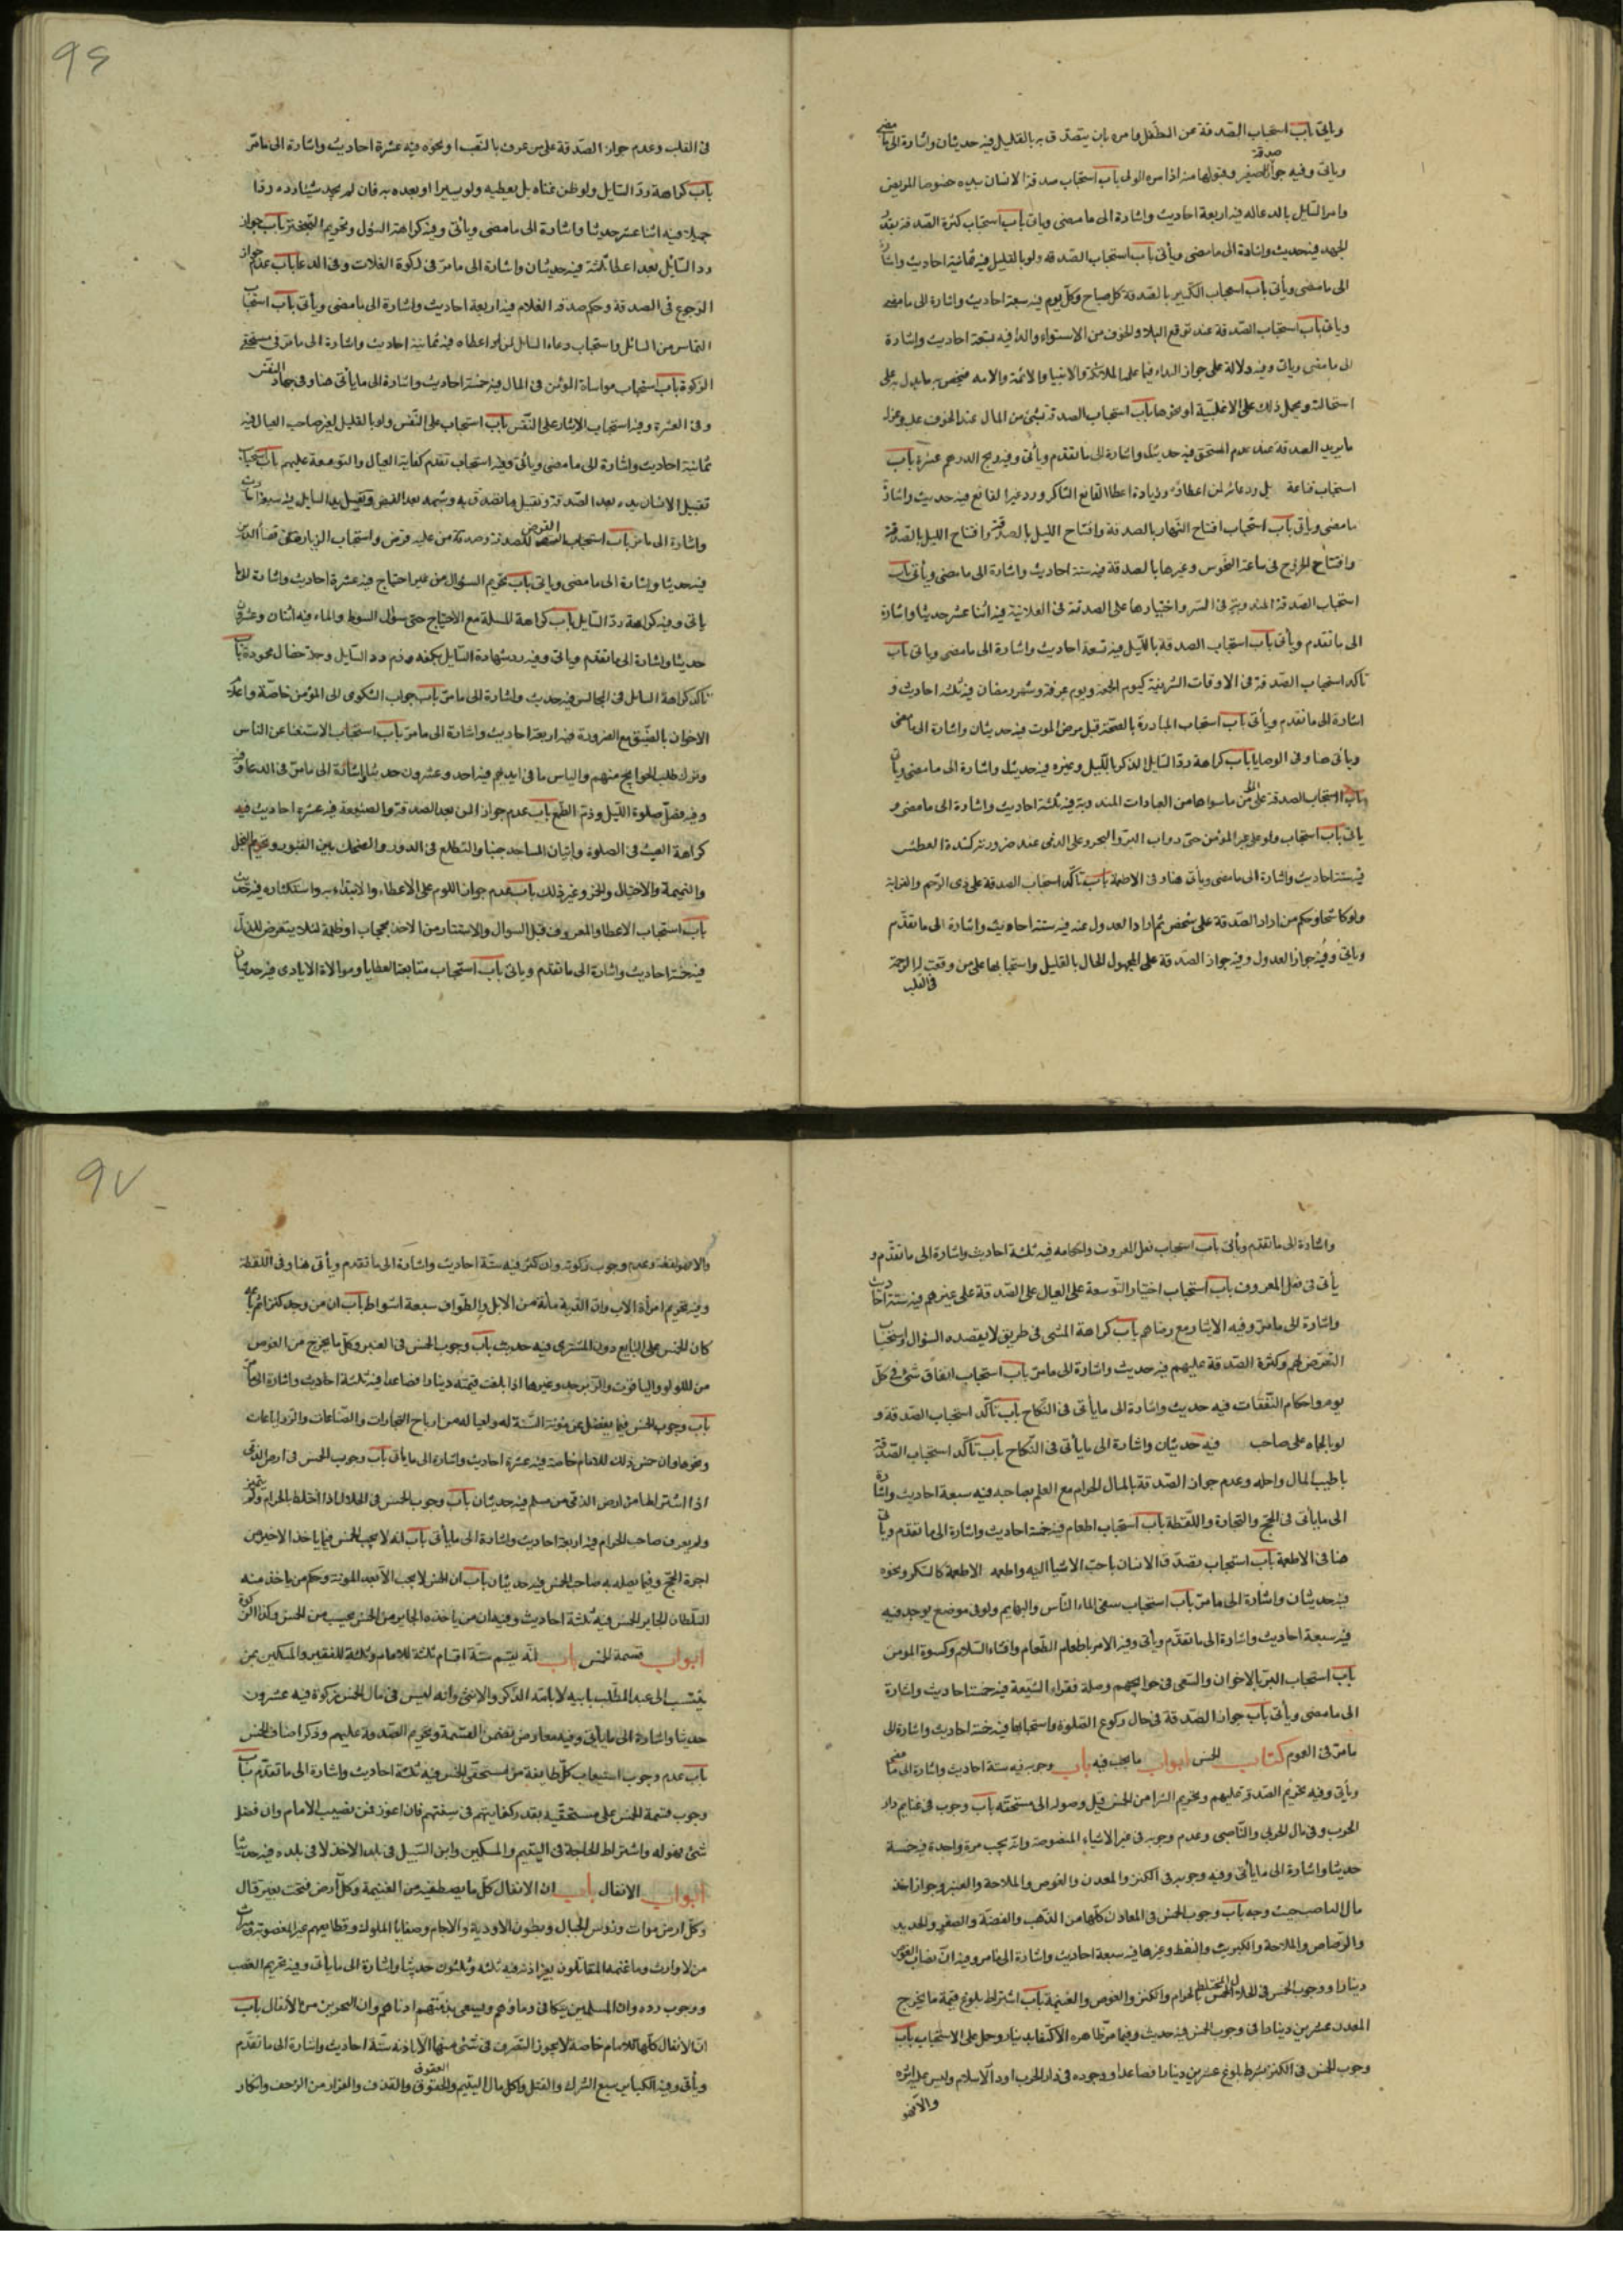 وياتى باب استحباب الصدقة عن الطفل وامره بان يتصدق به بالقليل فيه حديثان واشارة الى ما مضى
وياتى وفيه جواز صدقة الصغير وقبولها منه اذا مره الولى باب استحباب صدقة الانسان بيده خصوصا المريض
وامر السايل بالدعاله فيه اربعة احاديث واشارة الى ما مضى وياتى باب استحباب كثرة الصدقة بقدر
الجهد فيه حديث واشارة الى ما مضى ويأتى باب استحباب الصدقه ولو بالقليل فيه ثمانية احاديث واشارة
الى ما مضى ويأتى باب استحباب التبكير بالصدقة كل صباح وكل يوم فيه سبعة احاديث واشارة الى ما مضى
وياتى باب استحباب الصدقة عند توقع البلا والخوف من الاسواء والداء فيه تسعة احاديث واشارة
الى ما مضى وياتى وفيه دلالة على جواز البداء فيما علمه الملائكة والانبيا والائمة
استحالته ويحمل ذلك على الاغلبية او نحوها باب استحباب الصدقة بشئ من المال عند الخوف عليه وعزل
ما يريد الصدقة عند عدم المستحق فيه حديثان واشارة الى ما تقدم ويأتى وفيه ربح الدرهم عشرة باب
استحباب قناعة بل ودعائه لمن اعطاه وزيادة اعطا القانع الشاكر ورد غير القانع فيه حديث واشارة
ما مضى ويأتى باب استحباب افتتاح النهار بالصدقة وافتتاح الليل بالصدقة وافتتاح الليل بالصدقة
وافتتاح الخروج فى ساعة النحوس وغيرها بالصدقة فيه ستة احاديث واشارة الى ما مضى ويأتى باب
استحباب الصدقة المندوبة فى السر واختيارها على الصدقة فى العلانية فيه اثنا عشر حديثا واشارة
الى ما تقدم ويأتى باب استحباب الصدقة بالليل فيه تسعة احاديث واشارة الى ما مضى وياتى باب
تاكد استحباب الصدقة فى الاوقات الشريفة كيوم الجمعة ويوم عرفة وشهر رمضان فيه ثلثه احاديث و
اشارة الى ما تقدم ويأتى باب استحباب المبادرة بالصدقة قبل مرض الموت فيه حديثان واشارة الى ما مضى
ويأتى هنا وفى الوصايا باب كراهة رد السايل الذكر بالليل وغيره فيه حديثان واشارة الى ما مضى ويأتى
باب استحباب الصدقة على ما سواها من العبادات المندوبة فيه ثلثة احاديث واشارة الى ما مضى و
ياتى باب استحباب ولو على غير المؤمن حتى دواب البر والبحر وعلى الذمى عند ضرورته كشدة العطش
فيه ستة احاديث واشارة الى ما مضى ويأتى هنا وفى الاطعمة باب تأكد استحباب الصدقة على ذى الرحم والقرابة
ولو كاشحا وحكم من اراد الصدقة على شخص ثم اراد العدول عنه فيه ستة احاديث واشارة الى ما تقدم
وياتى وفيه جواز العدول وفيه جواز الصدقة على المجهول الحال بالقليل واستحبابها على من وقعت له الرحمة
فى القلب
فى القلب وعدم جواز الصدقة على من عرف بالنصب او نحوه فيه عشرة احاديث واشارة الى ما مر
باب كراهة رد السايل ولو ظن غناه بل يعطيه ولو يسيرا او يعده به فان لم يجد شيئا رده ردا
جميلا فيه اثنا عشر حديثا واشارة الى ما مضى ويأتى وفيه كراهة السؤل وتحريم التبختر باب جواز
رد السائل بعد اعطا ثلثة فيه حديثان واشارة الى ما مر فى زكوة الغلات وفى الدعا باب عدم جواز
الرجوع فى الصدقة وحكم صدقه الغلام فيه اربعة احاديث واشارة الى ما مضى ويأتى باب استحباب
التماس من السائل واستحباب دعاء السايل لمن اعطاه فيه ثمانية احاديث واشارة الى ما مر فى مستحقى
الزكوة باب استحباب مواساة المؤمن فى المال فيه خمسة احاديث واشارة الى ما يأتى هنا وفى جهاد النفس
وفى العشرة وفيه استحباب الايثار على النفس باب استحباب على النفس ولو بالقليل لغير صاحب العيال فيه
ثمانية احاديث واشارة الى ما مضى ويأتى وفيه استحباب تقدم كفاية العيال والتوسعة عليهم باب استحباب
تقبيل الانسان يده بعد الصدقة وتقبيل ما تصدق به وشمه بعد القبض وتقبيل يد السايل فيه سبعة احاديث
واشارة الى ما مر باب استحباب القرض للصدقة وصدقة من عليه قرض واستحباب الزيارة على قضا الدين
فيه حديثا واشارة الى ما مضى وياتى باب تحريم السؤال من غير احتياج فيه عشرة احاديث واشارة الى ما
ياتى وفيه كراهة رد السايل باب كراهة المسلة مع الاحتياج حتى سؤال السوط والماء فيه اثنان وعشرون
حديثا واشارة الى ما تقدم وياتى وفيه رد شهادة السايل بكفه وذم رد السايل وحد خصال محمودة باب
تأكد كراهة السائل فى المجالس فيه حديث واشارة الى ما مر باب جواب الشكوى الى المؤمن خاصة واعلام
الاخوان بالضيق مع الضرورة فيه اربعة احاديث واشارة الى ما مر باب استحباب الاستغنا عن الناس
وترك طلب الحوايج منهم والياس ما فى ايديهم فيه احد وعشرون حديثا واشارة الى ما مر فى الدعا
وفيه فضل صلوة الليل وذم الطمع باب عدم جواز المن بعد الصدقة والصنيعة فيه عشرة احاديث فيه
كراهة العبث فى الصلوة واتيان المساجد جنبا والتطلع فى الدور والضحك بين القبور وتحريم البخل
والنميمة والاختيال وغير ذلك باب عدم جواز اللوم على الاعطاء والابتداء به واستكثاره فيه حديث
باب استحباب الاعطا والمعروف قبل السوال والاستتار من الاخذ بحجاب او ظلمة لئلا يتعرض للذل
فيه خمسة احاديث واشارة الى ما تقدم وياتى باب استحباب متابعة العطايا وموالاة الايادى فيه حديثان
٩٦
واشارة الى ما تقدم ويأتى باب استحباب فعل المعروف واحكامه فيه ثلثة احاديث واشارة الى ما تقدم و
يأتى فى فعل المعروف باب استحباب اختيار التوسعة على العيال على الصدقة على غيرهم فيه ستة احاديث
واشارة الى ما مر وفيه الايثار مع رضاهم باب كراهة المشى فى طريق لا يقصده السؤال واستحباب
التعرض لهم وكثرة الصدقة عليهم فيه حديث واشارة الى ما مر باب استحباب انفاق شئ فى كل
يوم واحكام النفقات فيه حديث واشارة الى ما يأتى فى النكاح باب تأكد استحباب الصدقة و
لو بالجاه على صاحب فيه حديثان واشارة الى ما يأتى فى النكاح باب تأكد استحباب الصدقة
باطيب المال واحله وعدم جواز الصدقة بالمال الحرام مع العلم بصاحبه فيه سبعة احاديث واشارة
الى ما يأتى فى الحج والتجارة واللقطة باب استحباب اطعام فيه خمسة احاديث واشارة الى ما تقدم ويأتى
هنا فى الاطعمة باب استحباب تصدق الانسان باحب الاشيا اليه واطعمه الاطعمة كالسكر ونحوه
فيه حديثان واشارة الى ما مر باب استحباب سقى الماء الناس والبهايم ولو فى موضع يوجد فيه
فيه سبعة احاديث واشارة الى ما تقدم ويأتى وفيه الامر باطعام الطعام وافشاء السلام وكسوة المومن
باب استحباب البر بالاخوان والسعى فى حوائجهم وصلة فقراء الشيعة فيه خمسة احاديث واشارة
الى ما مضى ويأتى باب جواز الصدقة فى حال ركوع الصلوة واستحبابها فيه خمسة احاديث واشارة الى
ما مر فى العموم كتاب الخمس ابواب ما يجب فيه باب وجوبه فيه ستة احاديث واشارة الى ما مضى
ويأتى وفيه تحريم الصدقة عليهم وتحريم الشرا من الخمس قبل وصوله الى مستحقه باب وجوب فى غنايم دار
الحرب وفى مال الحربى والناصبى وعدم وجوبه فى غير الاشياء المنصوصة وانه يجب مرة واحدة فيه خمسة
حديثا واشارة الى ما يأتى وفيه وجوبه فى الكنز والمعدن والغوص والملاحة والعنبر وجواز اخذ
مال الناصب حيث وجد باب وجوب الخمس فى المعادن كلها من الذهب والفضة والصفر والحديد
والرصاص والملاحة والكبريت والنفط وغيرها فيه سبعة احاديث واشارة الى ما مر وفيه ان نصاب الغوص
دينارا ووجوب الخمس فى الحلال المختلط بالحرام والكنز والغوص والغنيمة باب اشتراط بلوغ قيمة ما يخرج
المعدن عشرين دينارا فى وجوب الخمس فيه حديث وفيما مر ظاهره الاكتفا بدينار وحمل على الاستحباب باب
وجوب الخمس فى الكنز بشرط بلوغ عشرين دينارا فصاعدا ووجوده فى دار الحرب او دار الاسلام وليس عليه اثره
والا فهو
والا فهو لقطة وعدم وجوب زكوته وان كثر فيه ستة احاديث واشارة الى ما تقدم ويأتى هنا وفى اللقطة
وفيه تحريم امرأة الاب وان الدية مائة من الابل والطواف سبعة اشواط باب ان من وجد كنزا ثم باعه
كان الخمس على البايع دون المشترى فيه حديث باب وجوب الخمس فى العنبر وكل ما يخرج من الغوص
من اللولو والياقوت والزبرجد وغيرها اذا بلغت قيمته دينارا فصاعدا فيه ثلثة احاديث واشارة الى ما مر
باب وجوب الخمس فيما يفضل عن مؤنة السنة له ولعياله من ارباح التجارات والصناعات والزراعات
ونحوها وان خمس ذلك للامام خاصة فيه عشرة احاديث واشارة الى ما يأتى باب وجوب الخمس فى ارض الذمى
اذا اشتراها من ارض الذمى من مسلم فيه حديثان باب وجوب الخمس فى الحلال اذا اختلط بالحرام ولم يتميز
ولم يعرف صاحب الحرام فيه اربعة احاديث واشارة الى ما يأتى باب انه لا يجب الخمس فيما ياخذ الاجير من
اجرة الحج وفيما يصله به صاحب الخمس فيه حديثان باب ان الخمس لا يجب الا بعد المونة وحكم من ياخذ منه
السلطان الجاير الخمس فيه ثلثة احاديث وفيه ان من ياخذه الجاير من الخمس يحسب من الخمس وكذا الزكوة
ابواب قسمة الخمس باب انه يقسم ستة اقسام ثلثة للامام وثلثة للفقير والمسكين ممن
ينتسب الى عبد المطلب بابيه لا بامه الذكر والانثى وانه ليس فى مال الخمس زكوة فيه عشرون
حديثا واشارة الى ما يأتى وفيه معارض تضمن القسمة وتحريم الصدقة عليهم وذكر اصناف الخمس
باب عدم وجوب استيعاب كل طايفة من مستحقى الخمس فيه ثلثة احاديث واشارة الى ما تقدم باب
وجوب قسمة الخمس على مستحقيه بقدر كفايتهم فى سنتهم فان اعوز فمن نصيب الامام وان فضل
شئ فهو له واشتراط الحاجة فى اليتيم والمسكين وابن السبيل فى بلد الاخذ لا فى بلده فيه حديثان
ابواب الانفال باب ان الانفال كل ما يصطفيه من الغنيمة وكل ارض فتحت بغير قتال
وكل ارض موات ورؤس الجبال وبطون الاودية والاجام وصفايا الملوك وقطايعهم غير المغصوبة وميراث
من لا وارث وما غنمه المقاتلون بغير اذنه فيه ثلثه وثلثون حديثا واشارة الى ما يأتى وفيه تحريم الغصب
ووجوب رده وان المسلمين يتكافى دماؤهم ويسعى بذمتهم ادناهم وان البحرين من الأنفال باب
ان الانفال كلها للامام خاصة لا يجوز التصرف فى شئ منها الا باذنه ستة احاديث واشارة الى ما تقدم
ويأتى وفيه الكباير سبع الشرك والقتل واكل مال اليتيم والعقوق والقذف والفرار من الزحف وانكار
٩٧